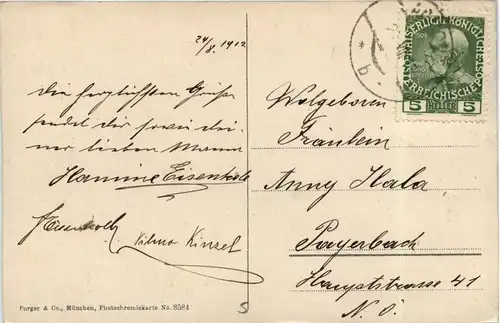 24/8. 1912.
Die herzlichsten Grüße
sendet dir sowie dei-
ner lieben Mama
Hermine Eisenkolb
Eisenkolb
Kinzel
Purger & Co., München, Photochromiekarte No. 8584
5
KAISERLICHE KÖNIGLICHE
ÖSTERREICHISCHE
5 HELLER 5
Wolgeboren
Fräulein
Anny Hala
Payerbach
Hauptstrasse 41
N. Ö.